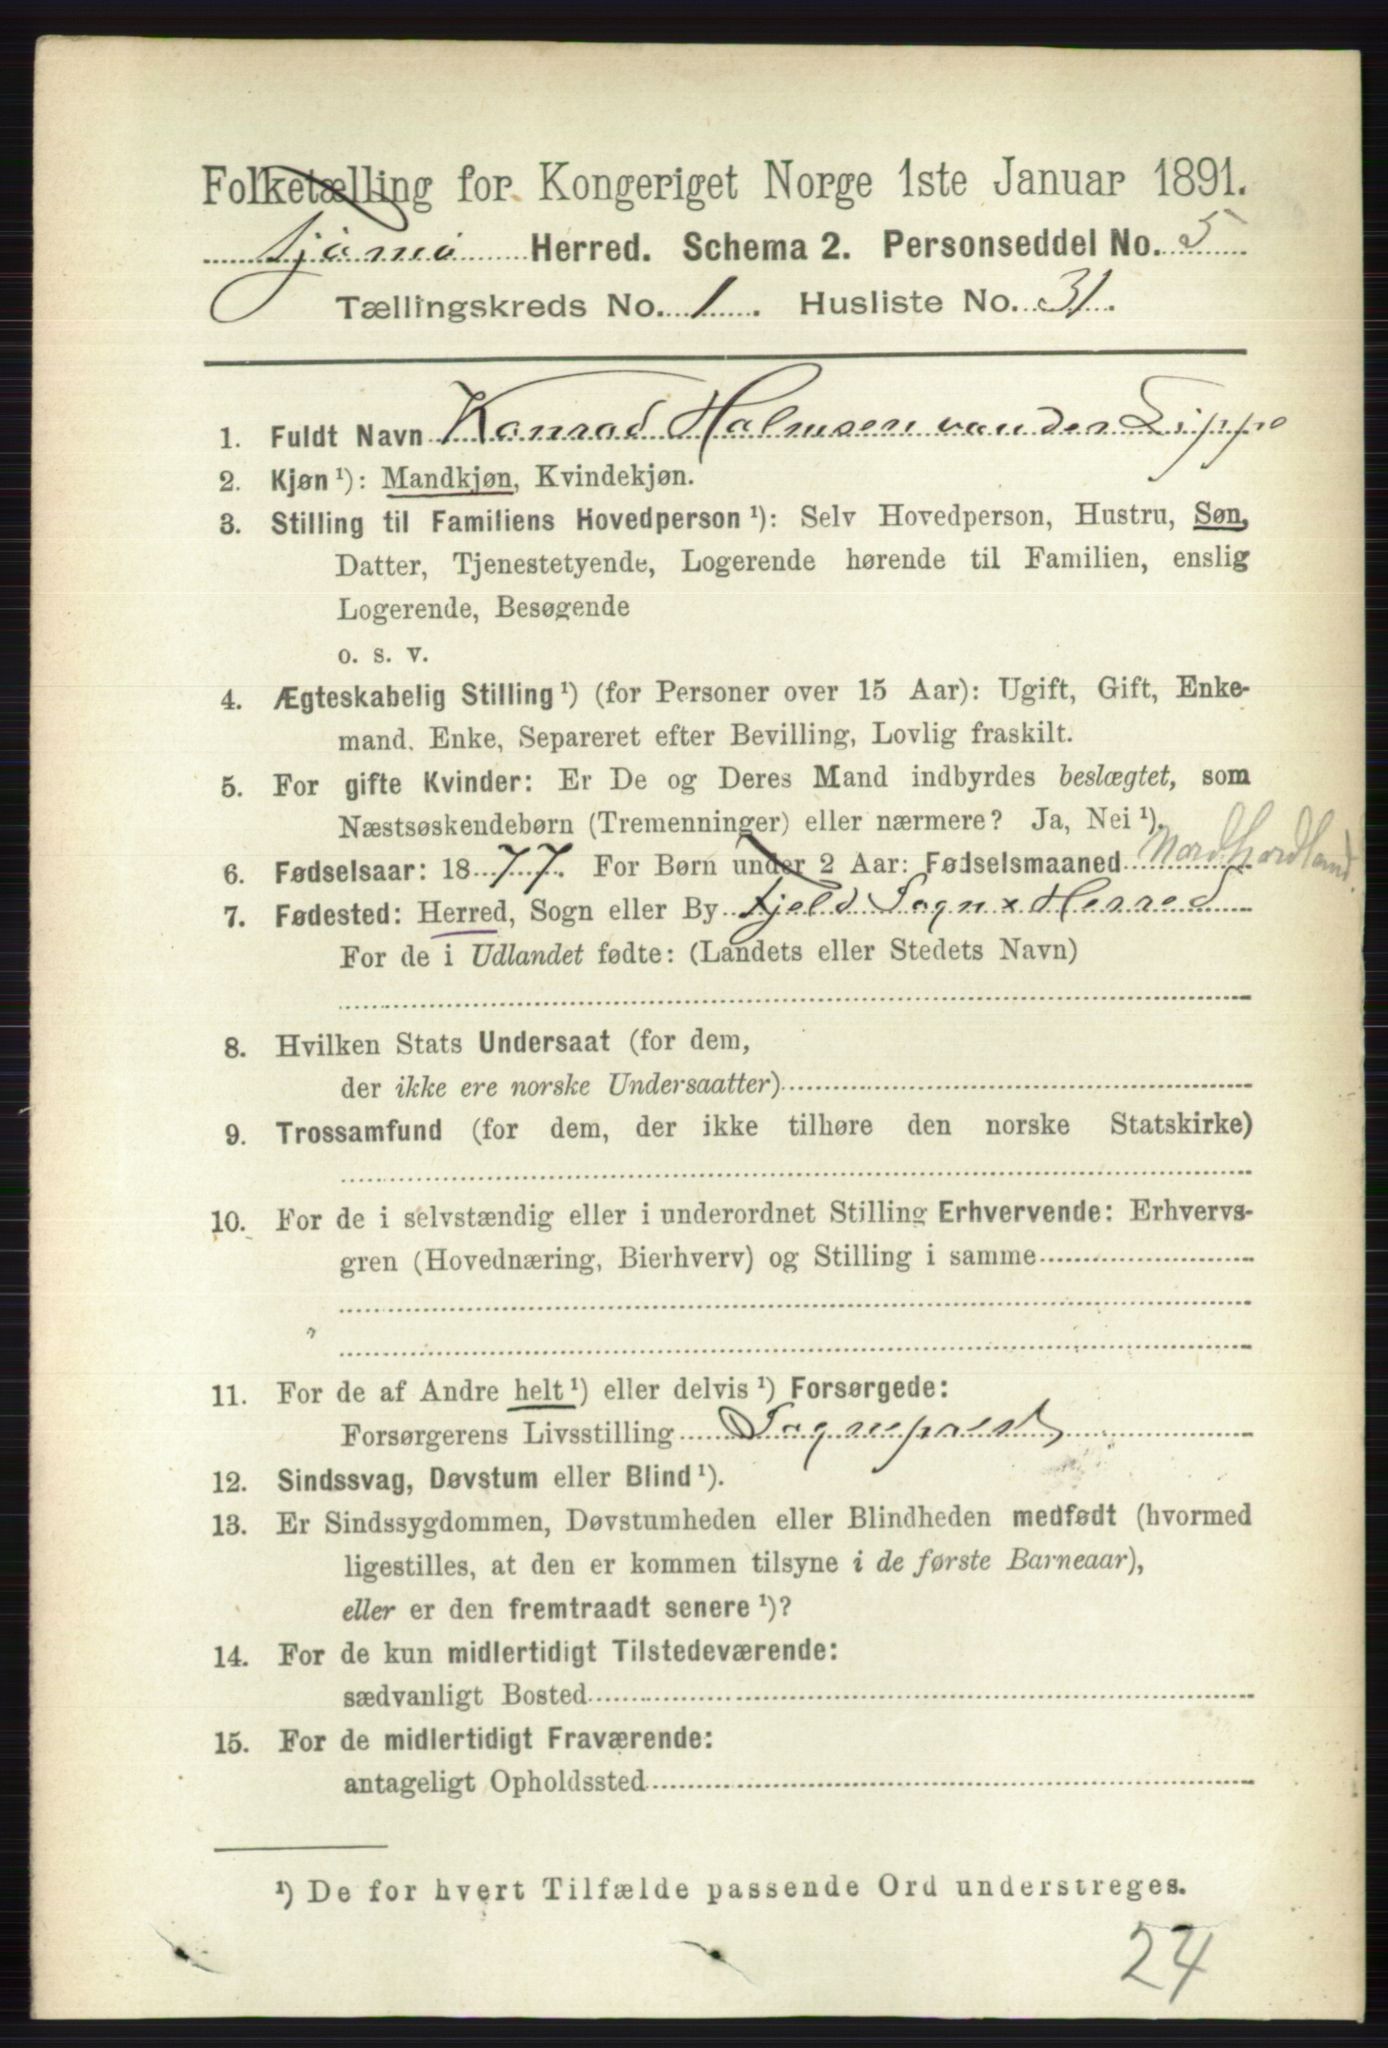 Folketælling for Kongeriget Norge 1ste Januar 1891.
Tjømø Herred. Schema 2. Personseddel No. 5
Tællingskreds No. 1. Husliste No. 31.
1. Fuldt Navn Konrad Halmsen van der Lippe
2. Kjøn ¹): Mandkjøn, Kvindekjøn.
3. Stilling til Familiens Hovedperson ¹): Selv Hovedperson, Hustru, Søn,
Datter, Tjenestetyende, Logerende hørende til Familien, enslig
Logerende, Besøgende
o. s. v.
4. Ægteskabelig Stilling ¹) (for Personer over 15 Aar): Ugift, Gift, Enke-
mand. Enke, Separeret efter Bevilling, Lovlig fraskilt.
5. For gifte Kvinder: Er De og Deres Mand indbyrdes beslægtet, som
Næstsøskendebørn (Tremenninger) eller nærmere? Ja, Nei ¹).
Nordhordland.
6. Fødselsaar: 1877. For Børn under 2 Aar: Fødselsmaaned
7. Fødested: Herred, Sogn eller By Fjeld Sogn x Herred
For de i Udlandet fødte: (Landets eller Stedets Navn)
8. Hvilken Stats Undersaat (for dem,
der ikke ere norske Undersaatter)
9. Trossamfund (for dem, der ikke tilhøre den norske Statskirke)
10. For de i selvstændig eller i underordnet Stilling Erhvervende: Erhvervs-
gren (Hovednæring, Bierhverv) og Stilling i samme
11. For de af Andre helt ¹) eller delvis ¹) Forsørgede:
Forsørgerens Livsstilling Sogneprest
12. Sindssvag, Døvstum eller Blind ¹).
13. Er Sindssygdommen, Døvstumheden eller Blindheden medfødt (hvormed
ligestilles, at den er kommen tilsyne i de første Barneaar),
eller er den fremtraadt senere ¹)?
14. For de kun midlertidigt Tilstedeværende:
sædvanligt Bosted
15. For de midlertidigt Fraværende:
antageligt Opholdssted
¹) De for hvert Tilfælde passende Ord understreges.
24